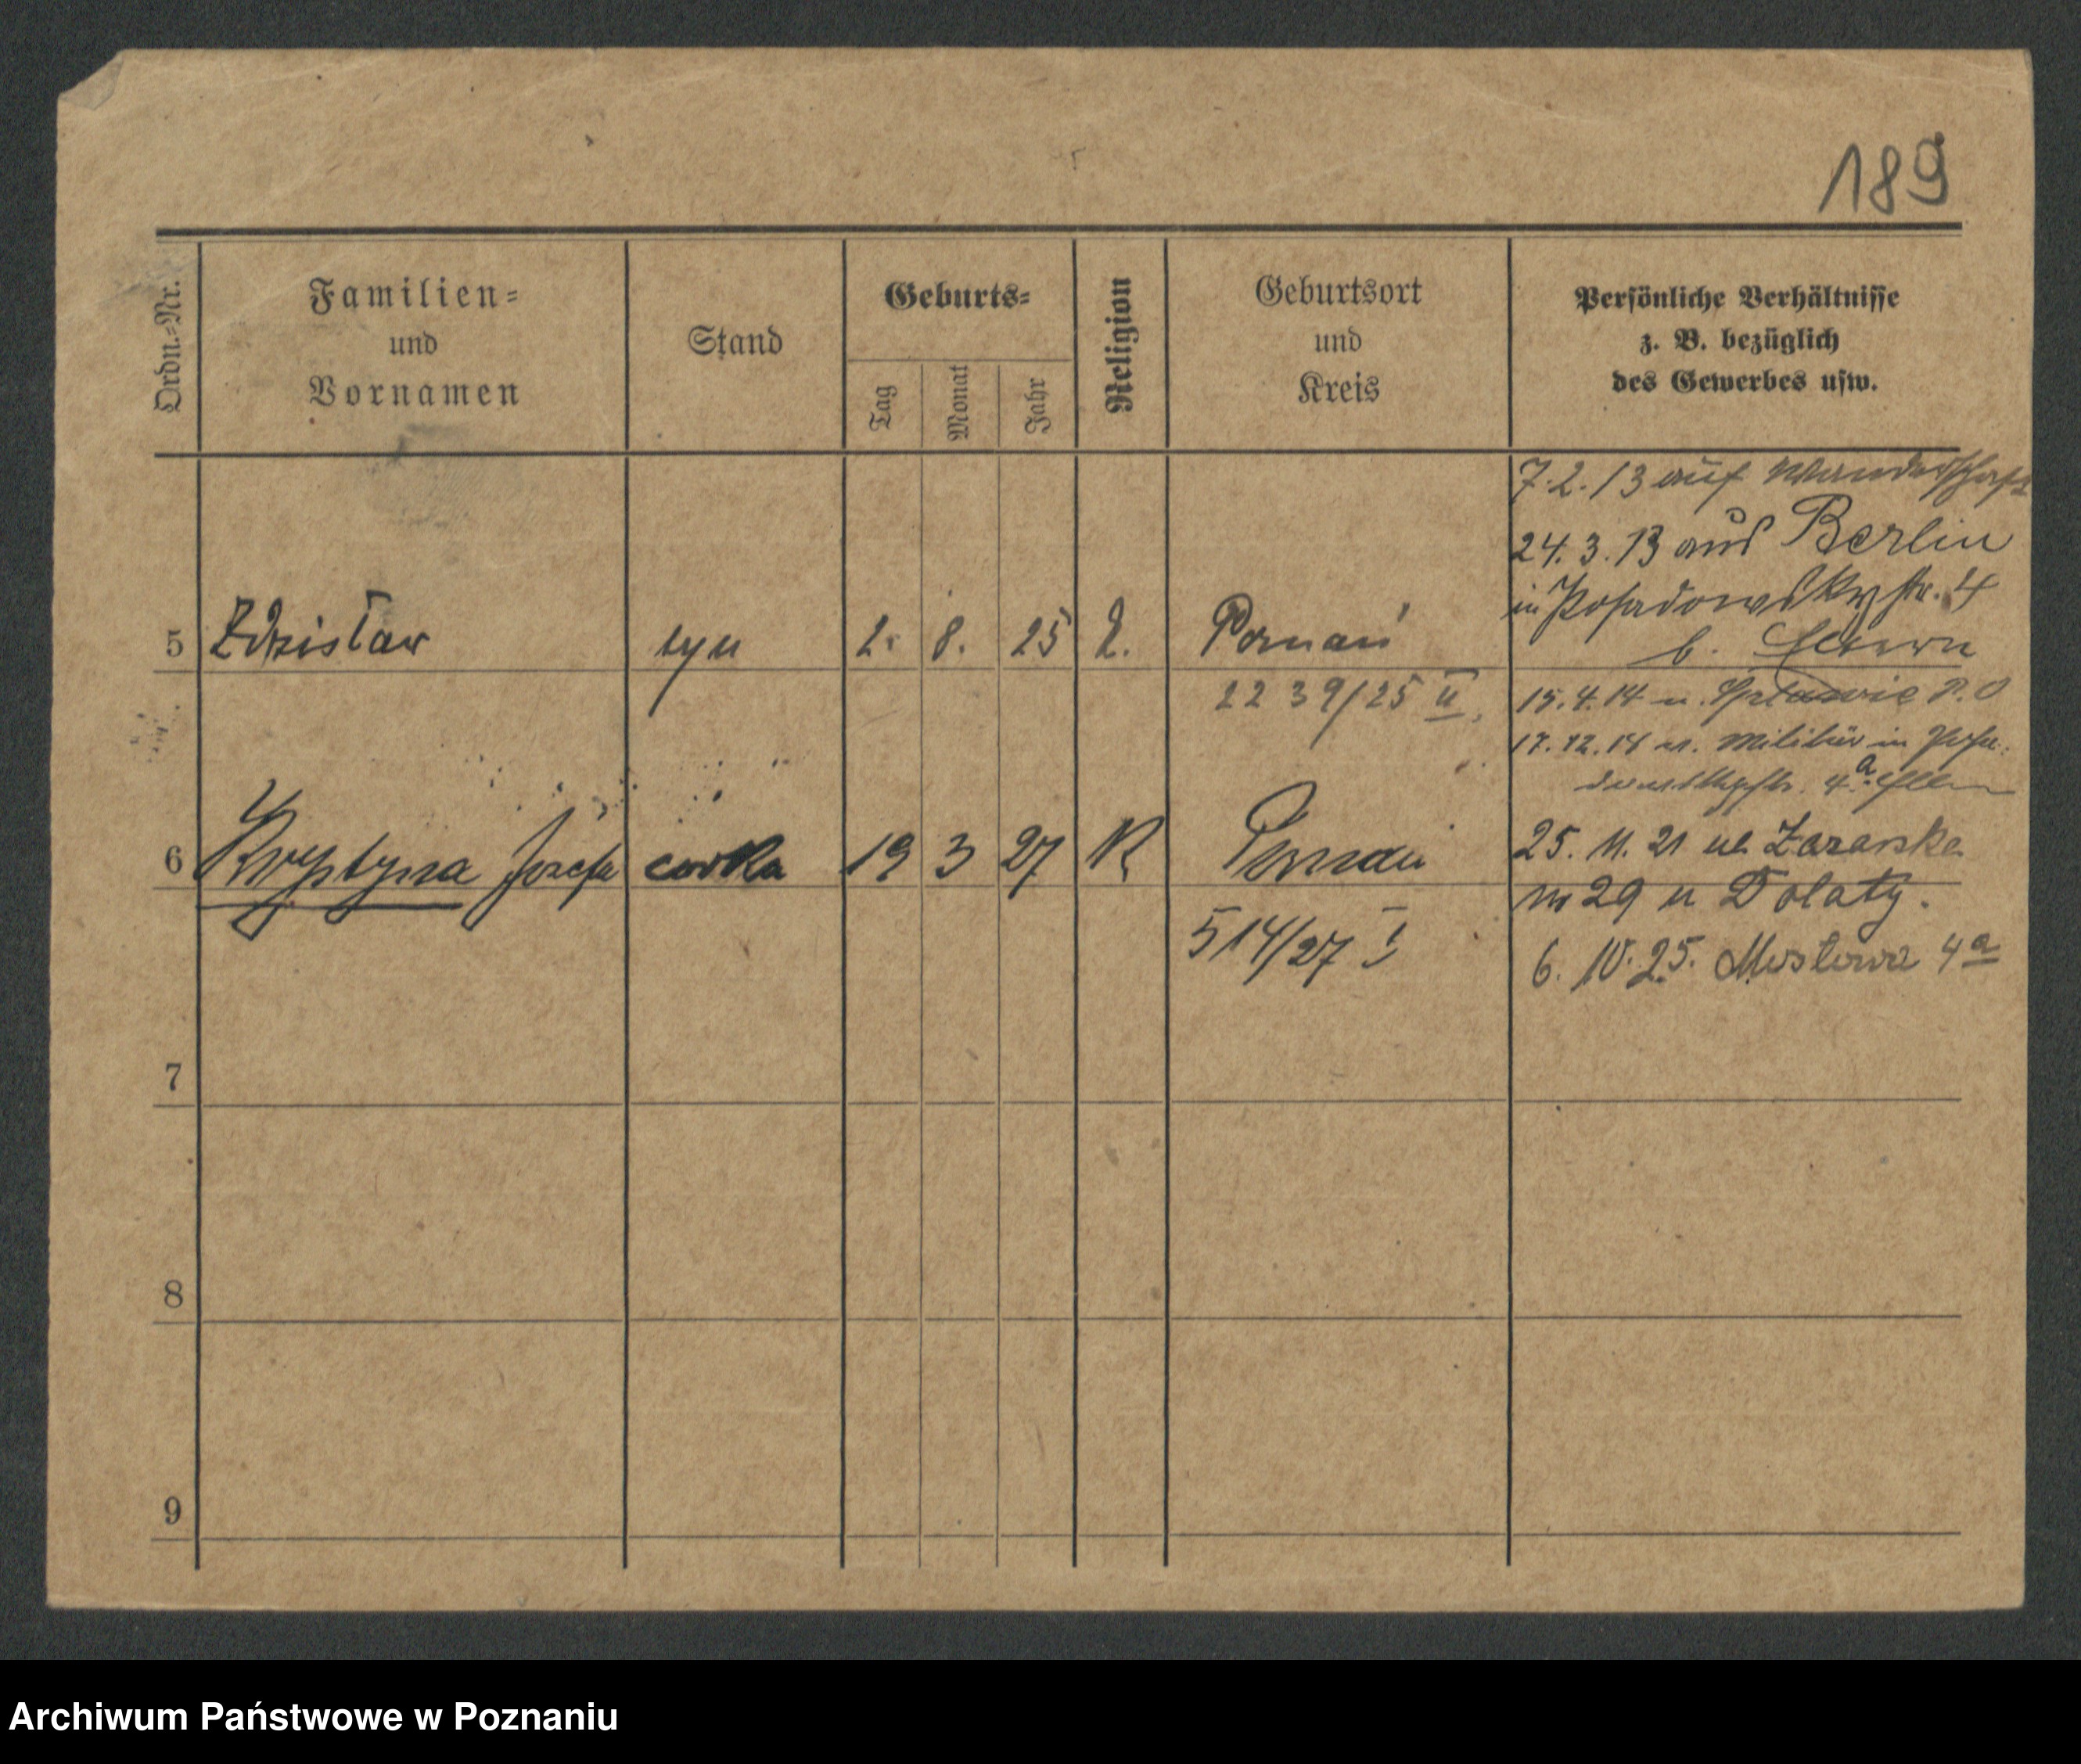 189
Ordn.-Nr.
Familien-
und
Vornamen
Stand
Geburts-
Tag
Monat
Jahr
Religion
Geburtsort
und
Kreis
Persönliche Verhältnisse
z. B. bezüglich
des Gewerbes usw.
7.2.13 auf Wanderschaft
24.3.13 aus Berlin
in Posadowskystr. 4
b. Eltern
5 Zdzisław syn 2. 8. 25 Poznań
2239/25 II
15.4.14 n.
17.12.14 n. Militär in Posa-
dowskystr. 4a Eltern
6 Krystyna Józefa córka 19 3 27 R Poznań
25. 11. 21 ul.
m 29 u Dolaty.
514/27 I
6. IV. 25. Mostowa 4a
7
8
9
Archiwum Państwowe w Poznaniu